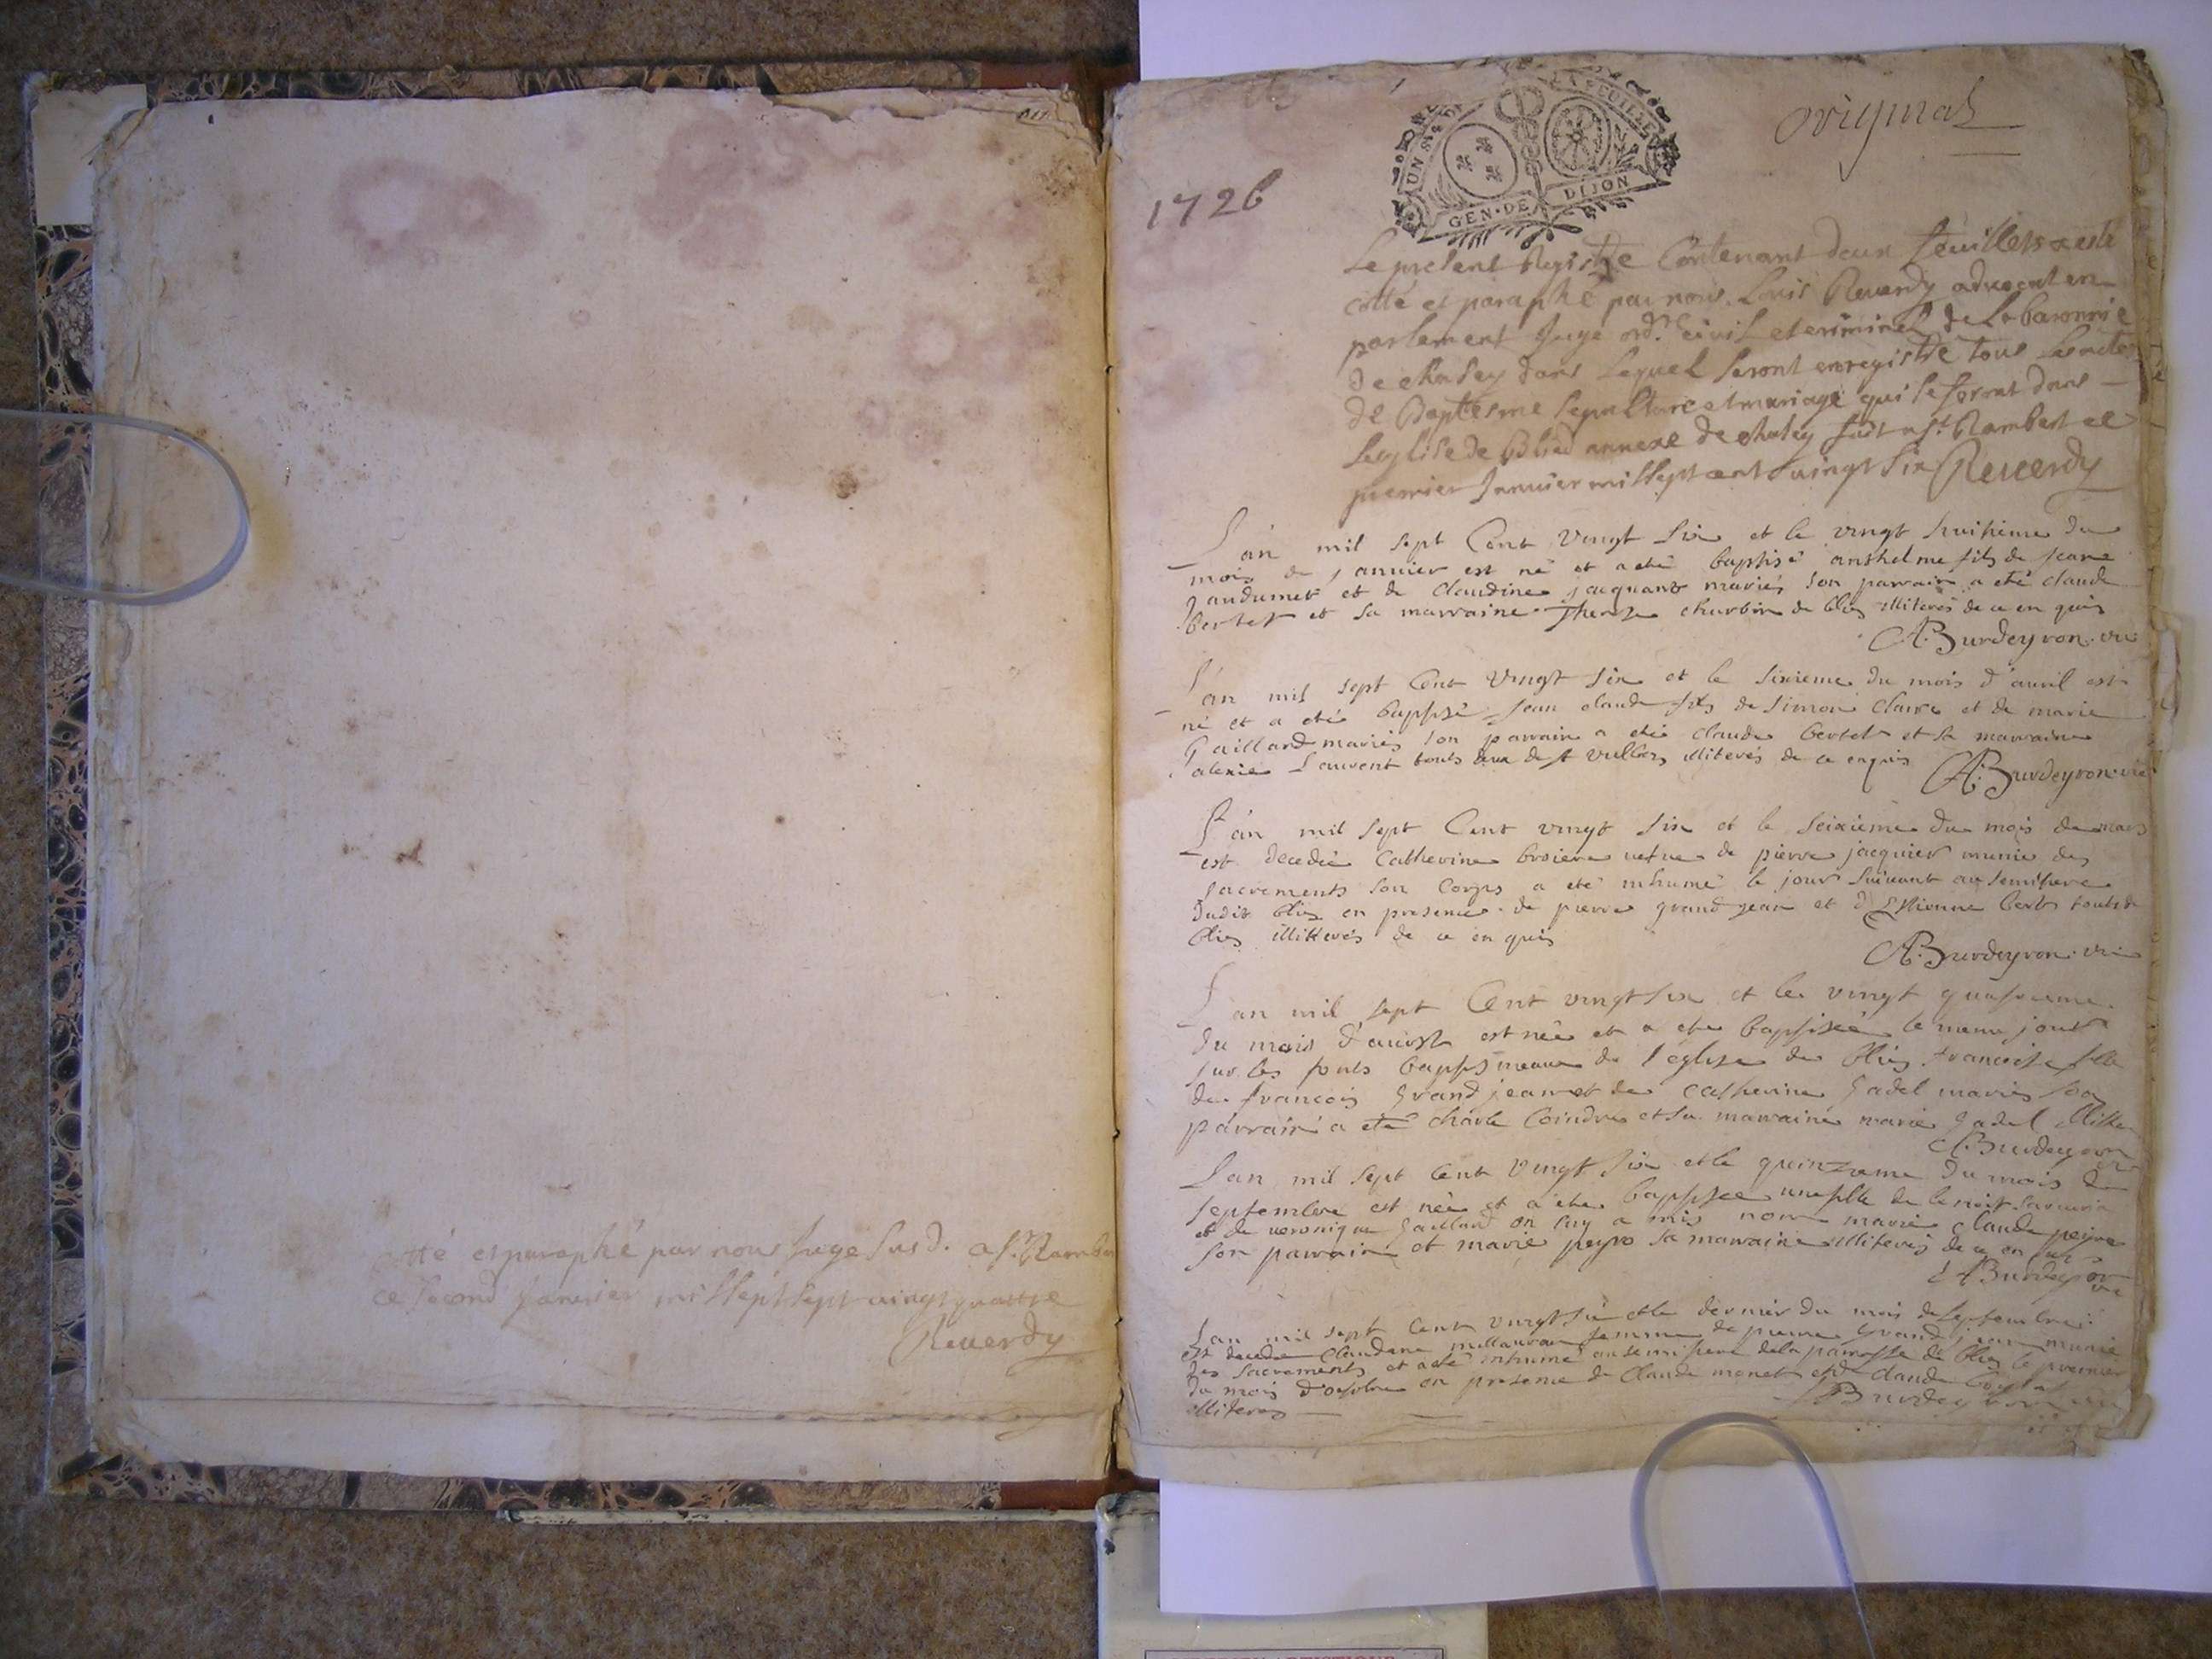 cotté et paraphé par nous Juge susd. a st. Rambert
ce second janvier mil sept sept vingt quattre
Reverdy
UN SOL LA FEUILLE
GEN·DE DIJON
origmal
1726
Le present Registre Contenant deux feuillets a esté
cotté et paraphé par nous Louis Reverdy advocat en
parlement Juge ord.re civil et criminel de la baronnie
de chaley dans Lequel seront enregistré tous les actes
de Baptesme sepulture et mariage qui se feront dans
Leglise de Blied annexe de chaley fait a st. Rambert ce
premier Janvier mil sept cent vingt six Reverdy
L'an mil sept Cent vingt six et le vingt huitieme du
mois de janvier est né et a eté baptisé anthelme fils de jean
Jandumet et de Claudine jacquand mariés son parrain a eté claude
bertet et sa marraine Therese charbin de blies illiterés de ce enquis
A. Burdeyron vic
L'an mil sept Cent vingt six et le sixieme du mois d'avril est
né et a eté baptisé jean claude fils de simon claire et de marie
Gaillard mariés son parrain a eté claude bertet et sa marraine
Laurent touts deux de illiterés de ce enquis A. Burdeyron vic
L'an mil sept Cent vingt six et le seixieme du mois de mars
est decedée Catherine broiere vefve de pierre jacquier munie des
sacrements son corps a eté inhumé le jour suivant au semitiere
dudit blies en presence de pierre grand jean et d'Estienne berte touts de
blies illitterés de ce enquis
A. Burdeyron vic
L'an mil sept Cent vingt six et le vingt quatrieme
du mois d'aoust est née et a eté baptisée le meme jour
sur les fonts baptismeaux de l'eglise de blies francoise fille
de francois Grand jean et de Catherine Gadel mariés son
parrain a eté charle Coindre et sa marraine marie gadel illitte
A. Burdeyron
L'an mil sept Cent vingt six et le quinzieme du mois de
septembre est née et a eté baptisée une fille de benoit
et de veronique Gaillard on luy a mis nom marie claude peyre
son parrain et marie peyro sa marraine illiterés de ce enquis
A. Burdeyron vic
L'an mil sept Cent vingt six et le dernier du mois de septembre
est decedée Claudine femme de pierre Grand jean munie
des sacrements et a eté inhumé au semitiere de la paroisse de blies le premier
du mois d'octobre en presence de Claude monet et de claude
illiteres A. Burdeyron vic